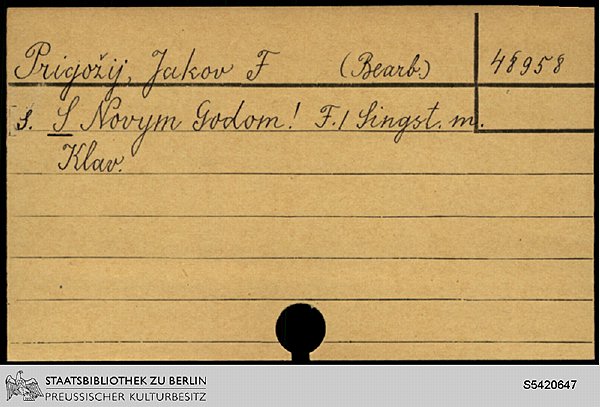 Prigožij, Jakov F (Bearb.) 48958
s. S Novym Godom! F. 1 Singst. m.
Klav.
STAATSBIBLIOTHEK ZU BERLIN
PREUSSISCHER KULTURBESITZ
S5420647